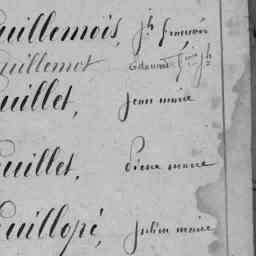 uillemois, jh françois
uillemot Edouard jh
uillet, jean marie
uillet, Pierre marie
uillopé, julien marie